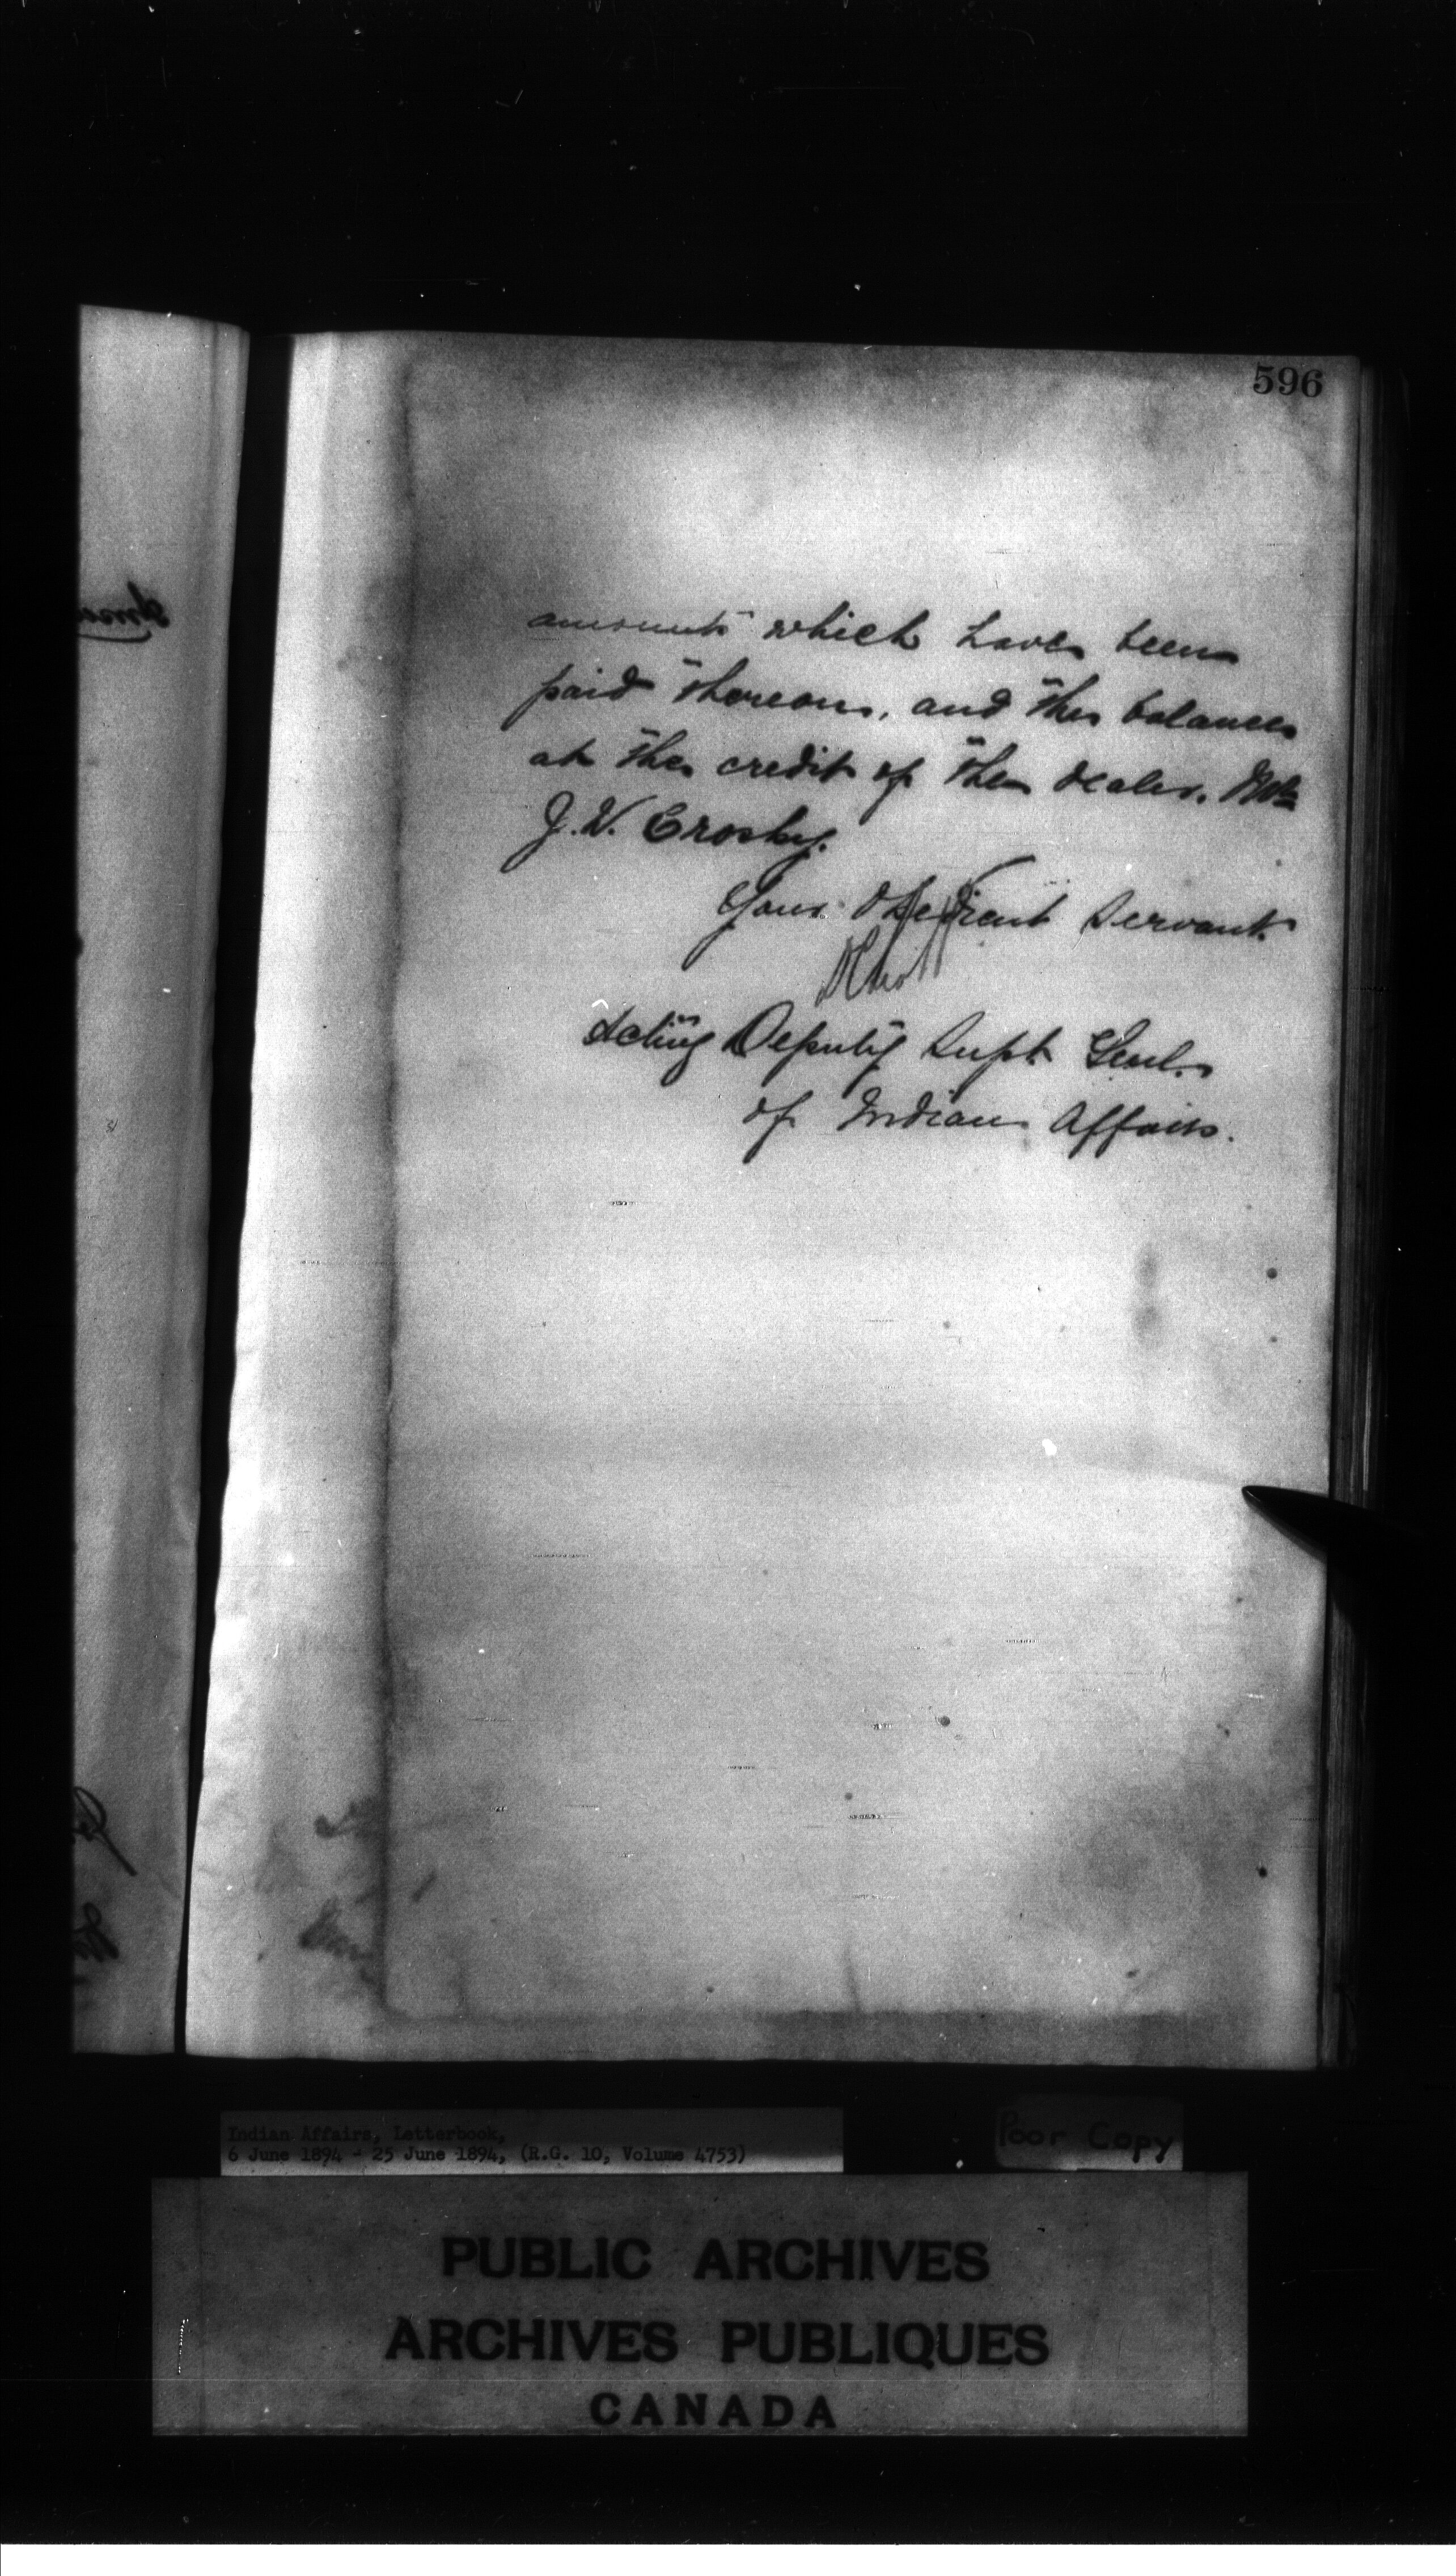 596
amounts which have been
paid thereon, and the balances
at the credit of the dealer,
J. W. Crosby.
Your Obedient Servant
Acting Deputy Supt Genl.
of Indian Affairs.
Indian Affairs, Letterbook,
6 June 1894 - 25 June 1894, (R.G. 10, Volume 4753)
Poor Copy
PUBLIC ARCHIVES
ARCHIVES PUBLIQUES
CANADA